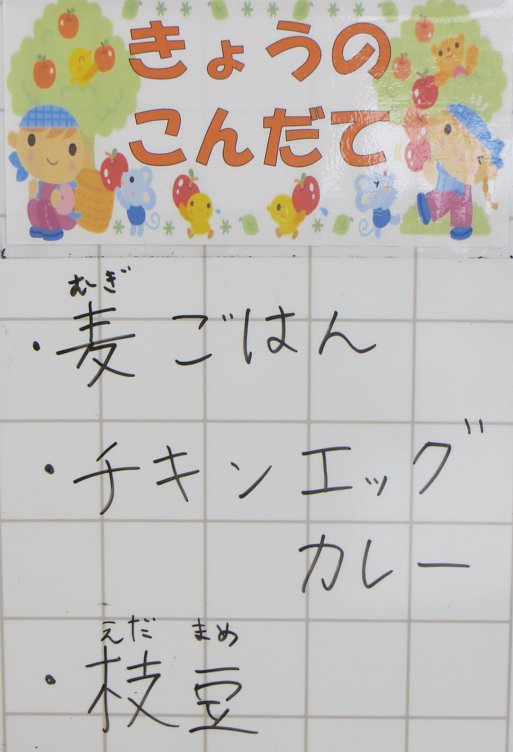 きょうの
こんだて
むぎ
・麦ごはん
・チキンエッグ
カレー
えだ まめ
・枝豆